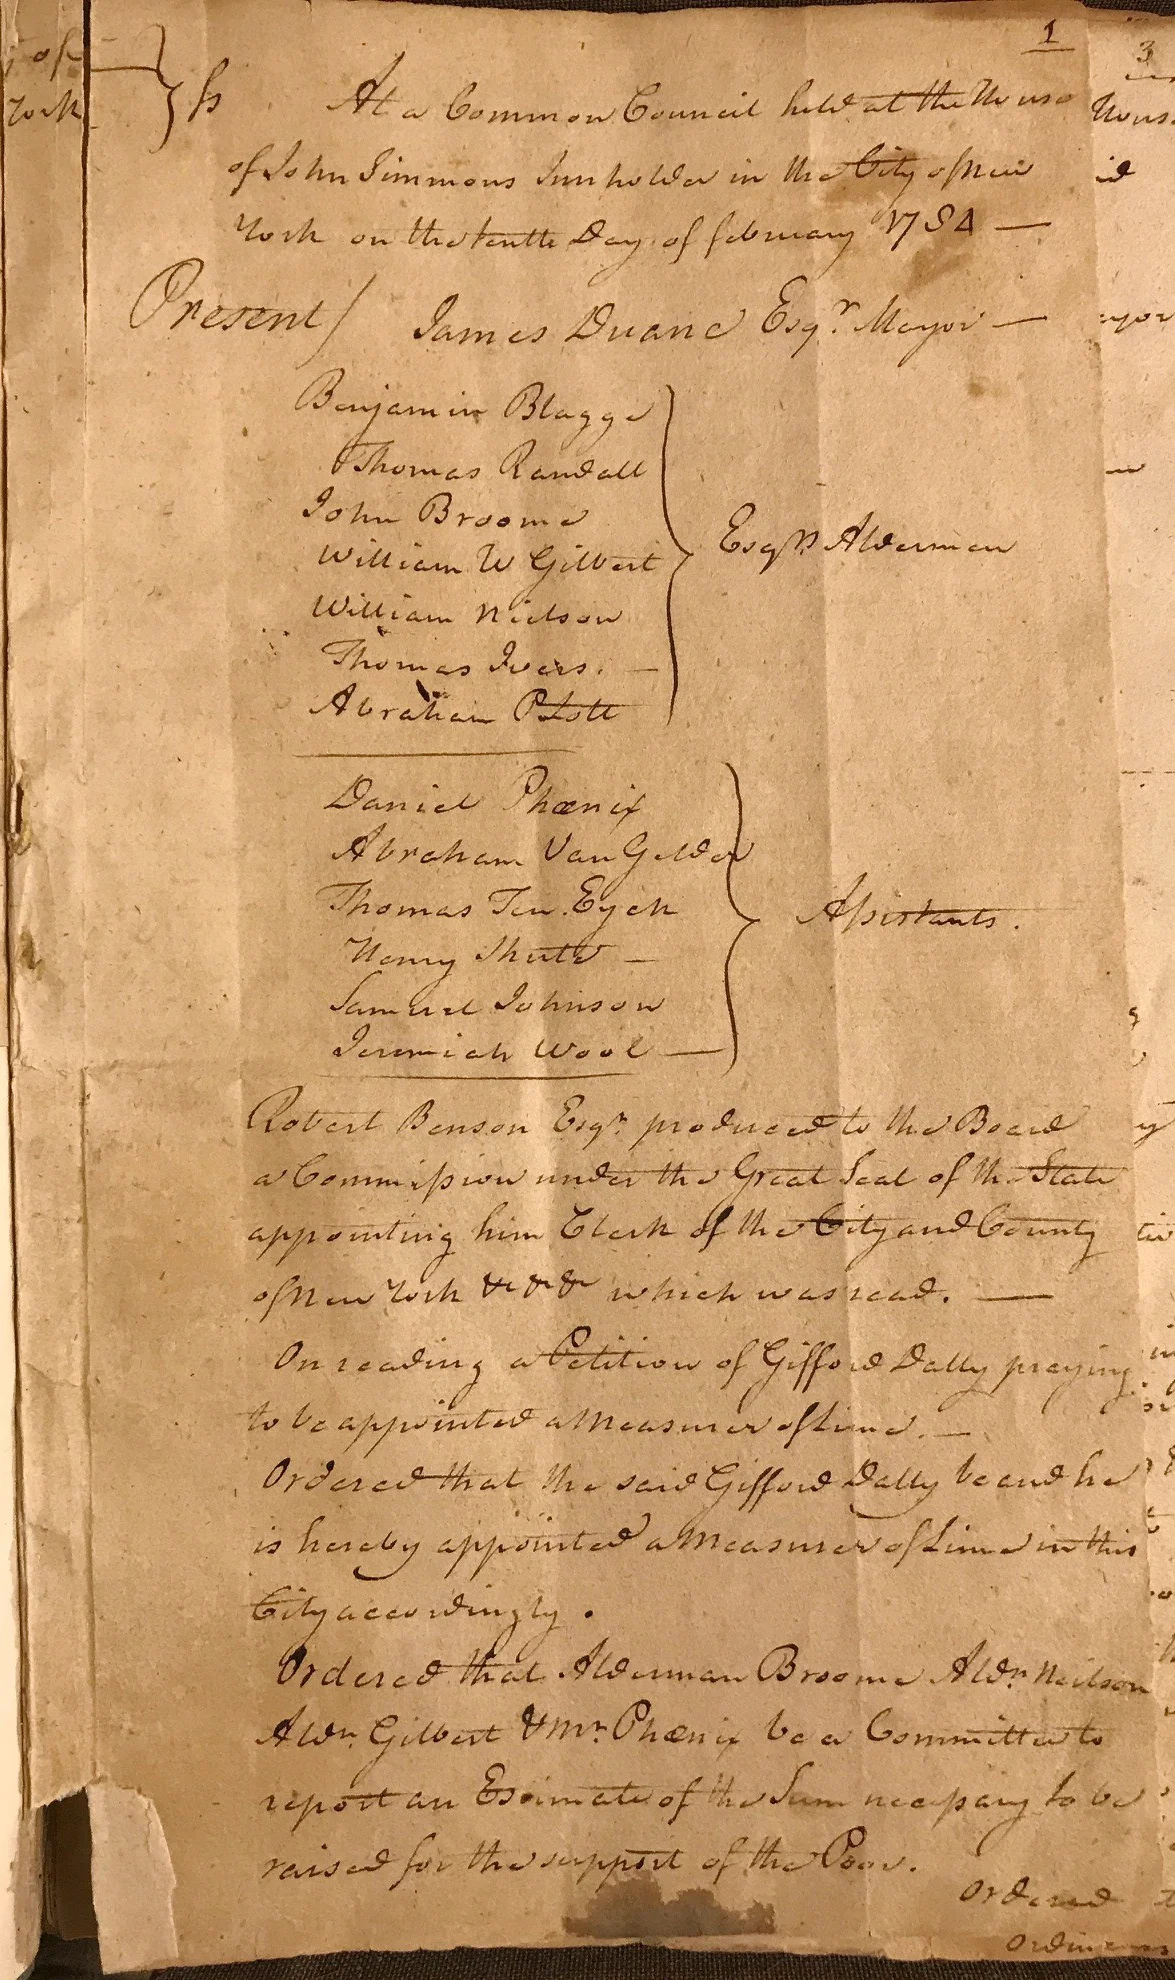 1
3
of
York } ss At a Common Council held at the House
of John Simmons Innholder in the City of New
York on the tenth Day of february 1784 —
Present / James Duane Esqr. Mayor —
Benjamin Blagge
Thomas Randall
John Broome
William W Gilbert
Esqrs. Aldermen
William Nielson
Thomas Ivers. —
Abraham P Lott
Daniel Phœnix
Abraham Van Gelder
Thomas Ten Eyck
Assistants.
Henry Shute —
Samuel Johnson
Jeremiah Wool —
Robert Benson Esqr. produced to the Board
a Commission under the Great Seal of the State
appointing him Clerk of the City and County
of New York &c &c &c which was read. —
On reading a Petition of Gifford Dally praying
to be appointed a Measurer of Lime. —
Ordered that the said Gifford Dally be and he
is hereby appointed a Measurer of Lime in this
City accordingly.
Ordered that Alderman Broome Aldn. Neilson
Aldn. Gilbert & Mr. Phœnix be a Committee to
report an Estimate of the Sum necessary to be
raised for the support of the Poor.
Ordered